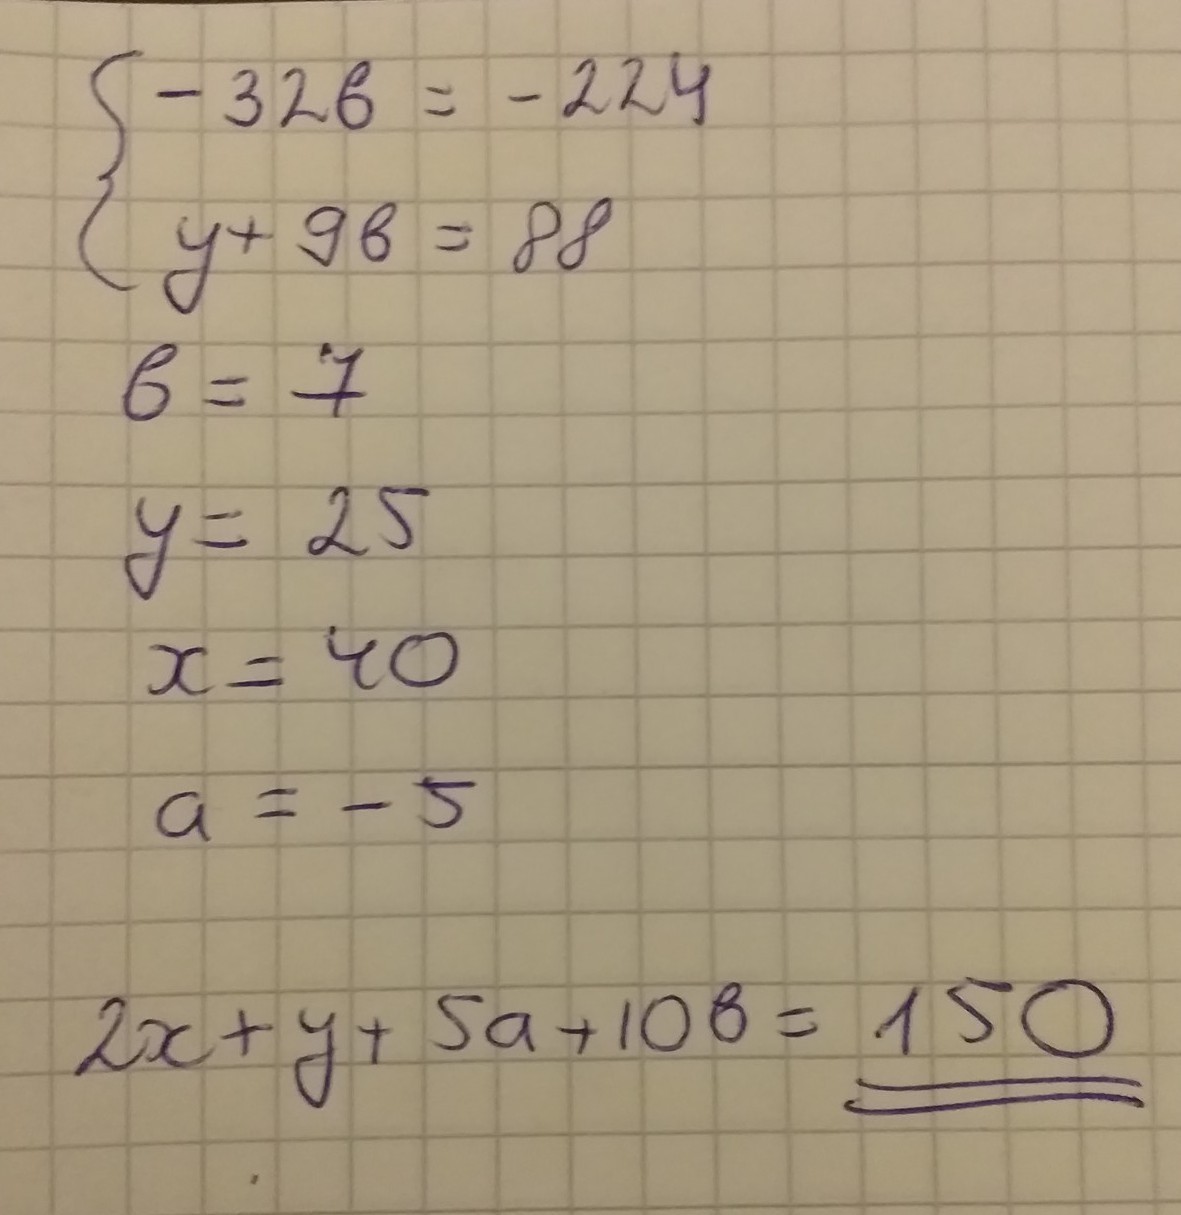 { -32b = -224
y + 9b = 88
b = 7
y = 25
x = 40
a = -5
2x + y + 5a + 10b = 150